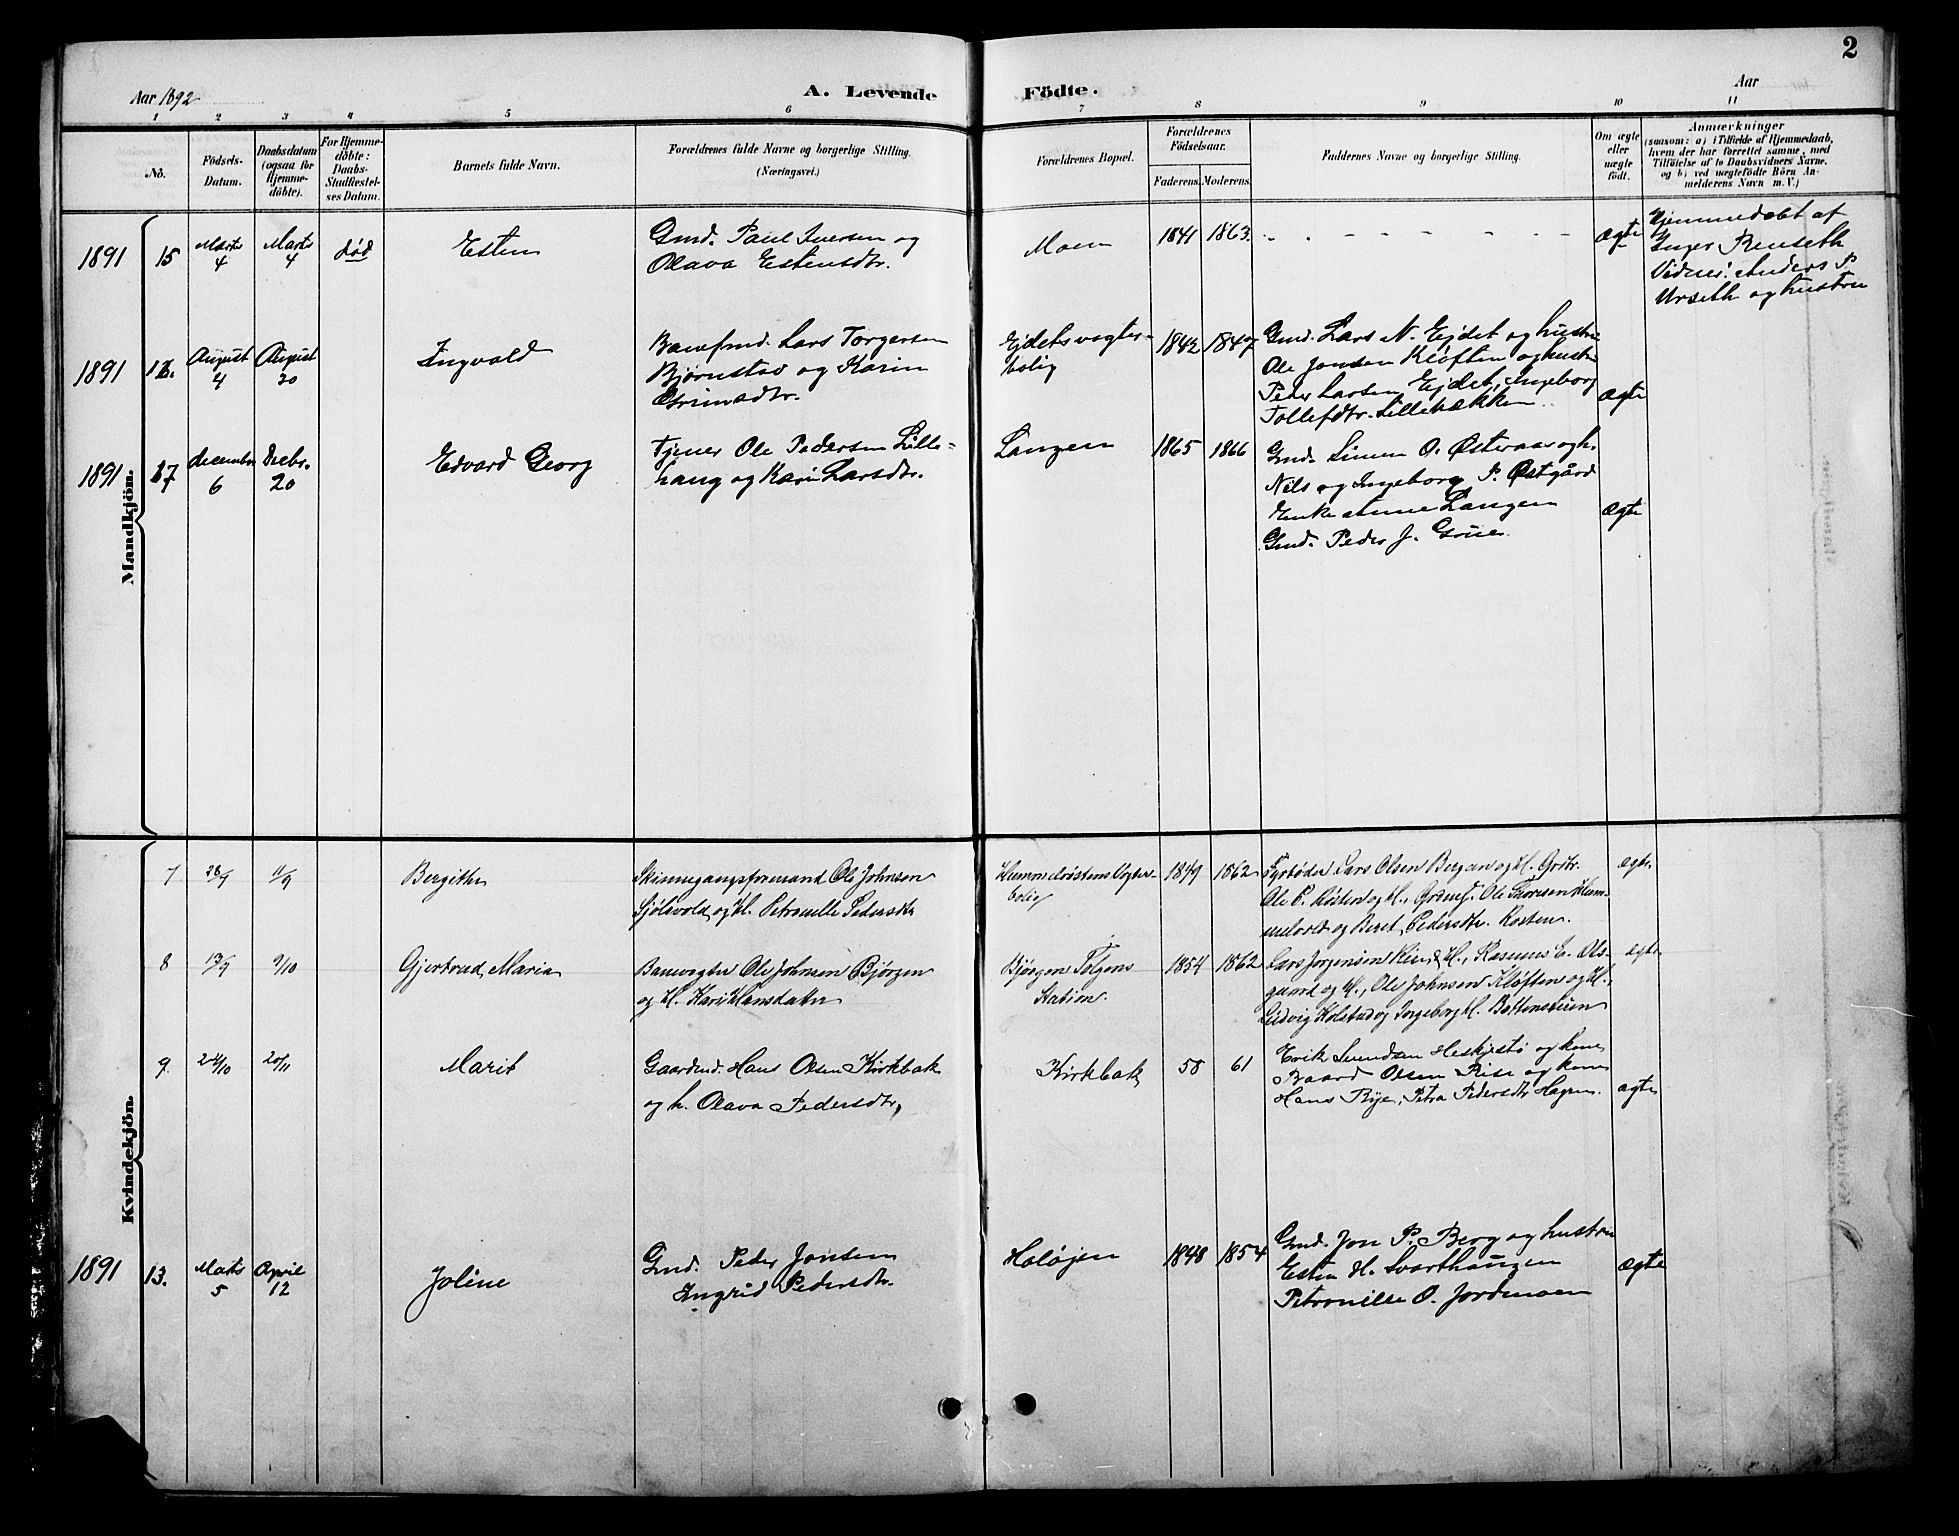 2
Aar 1892
A. Levende Födte.
Aar
1 2 3 4 5 6 7 8 9 10 11
No.
Födsels-Datum.
Daabsdatum (ogsaa for Hjemmedöbte).
For Hjemmedöbte: Daabs-Stadfæstelses Datum.
Barnets fulde Navn.
Forældrenes fulde Navne og borgerlige Stilling. (Næringsvei.)
Forældrenes Bopæl.
Forældrenes Födselsaar.
Faderens. Moderens.
Faddernes Navne og borgerlige Stilling.
Om ægte eller uægte födt.
Anmærkninger
(saasom: a) i Tilfælde af Hjemmedaab, hvem der har forrettet samme, med Tilföielse af to Daabsvidners Navne. og b) ved uægtefödte Börn Anmelderens Navn m. V.)
Mandkjön.
1891 15 Marts 4 Marts 4 død Esten
Gmd. Paul Iversen og
Olava Estensdtr.
Moen 1841 1863. ægte
Hjemmedøbt af
Inger Renseth
Vidner: Anders P.
Urseth og hustru
1891 16. August 4 August 30 Ingvald
Banefmd. Lars Torgersen
Bjørnstad og Karin
Grimsdtr.
Ejdets vogter-
bolig
1842 1847
Gmd. Lars N. Ejdet og hustru
Ole Jonsen Kløften og hustru
Peder Larsen Ejdet, Ingeborg
Tollefdtr. Lillebækken.
ægte
1891 17 December 6 Decbr. 20 Edvard Georg
Tjener Ole Pedersen Lille-
haug og Kari Larsdtr.
Langen 1865 1866
Gmd. Simen O. Østeraas og h.
Nils og Ingeborg P. Østgård
Enke Anne Langen
Gmd. Peder J. Grue.
ægte
Kvindekjön.
7 28/7 11/9 Bergithe
Skinnegangsformand Ole Johnsen
Sjølsvold og H. Petronelle Pedersdtr
Hummelvostens Vogter-
bolig
1849 1862
Fyrbøder Lars Olsen Bergan og H. Grdtr.
Ole P. Røsten og H., Grdmf. Ole Thoresen Hum-
melvold og Beret Pedersdtr. Rosten.
ægte.
8 13/9 9/10 Gjertrud Maria
Banevogter Ole Johnsen Bjørgen
og H. Kari Hansdatter
Bjørgen Tolgens
Station.
1854 1862
Lars Jørgensen & H., Rasmus E. Ols-
gaard og H., Ole Johnsen Kløften og H.,
Ludvig Kolstad og Ingeborg H.
ægte.
9. 24/10 20/11 Marit
Gaardmd. Hans Olsen Kirkbak
og h. Olava Pedersdtr,
Kirkbak 58 61
Erik Svendsen og kone,
Baard Olsen Rise og kone
Hans Rye, Petra Pedersdtr Hagen.
ægte
1891 13. Marts 5 April 12 Joline
Gmd. Peder Jonsen
Ingrid Pedersdtr.
Holøjen 1848 1854
Gmd. Jon P. Berg og hustru
Esten H. Svarthaugen
Petronille O. Jordmoen
ægte